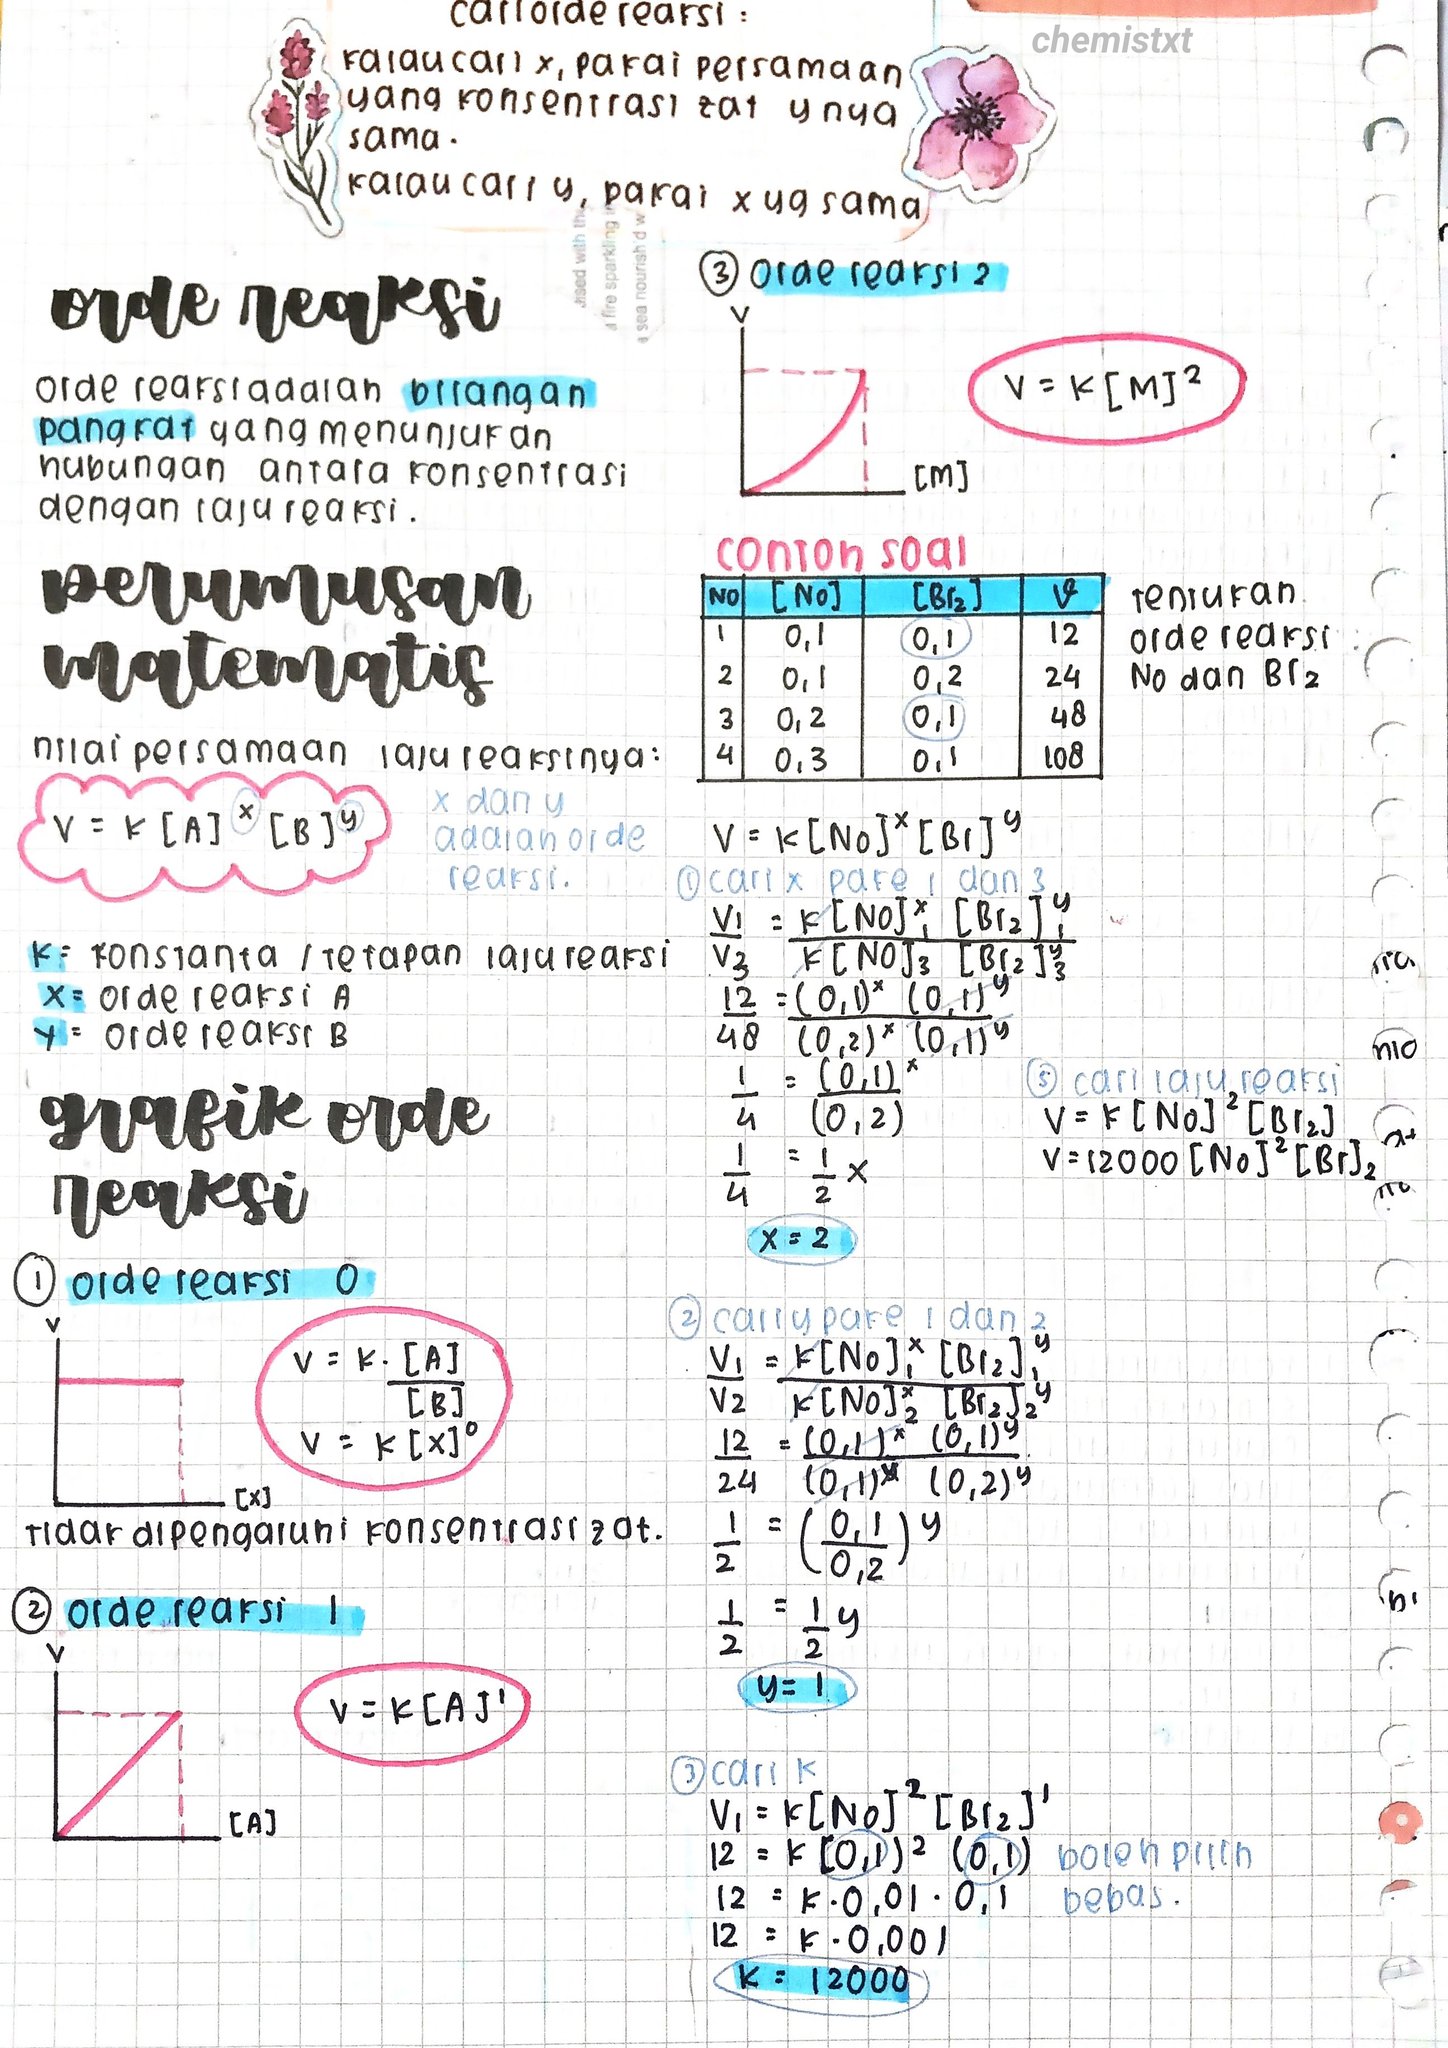 cari orde reaksi :
kalau cari x, pakai persamaan
yang konsentrasi zat y nya
sama.
kalau cari y, pakai x yg sama
chemistxt
orde reaksi
orde reaksi adalah bilangan
pangkat yang menunjukan
hubungan antara konsentrasi
dengan laju reaksi.
perumusan
matematis
nilai persamaan laju reaksinya:
V = k [A]ˣ [B]ʸ
x dan y
adalah orde
reaksi.
k = konstanta / tetapan laju reaksi
x = orde reaksi A
y = orde reaksi B
grafik orde
reaksi
① orde reaksi 0
V
V = k. [A]
[B]
V = k [x]⁰
[x]
tidak dipengaruhi konsentrasi zat.
② orde reaksi 1
V
V = k [A]¹
[A]
③ orde reaksi 2
V
V = k [M]²
[M]
contoh soal
NO [No] [Br₂] V
1 0,1 0,1 12
2 0,1 0,2 24
3 0,2 0,1 48
4 0,3 0,1 108
tentukan
orde reaksi
No dan Br₂
V = k [No]ˣ [Br]ʸ
① cari x pake 1 dan 3
V₁ = k [NO]₁ˣ [Br₂]₁ʸ
V₃ k [NO]₃ [Br₂]₃ʸ
12 = (0,1)ˣ (0,1)ʸ
48 (0,2)ˣ (0,1)ʸ
1 = (0,1)ˣ
4 (0,2)
1 = 1 x
4 2
x = 2
② cari y pake 1 dan 2
V₁ = k [No]₁ˣ [Br₂]₁ʸ
V₂ k [No]₂ˣ [Br₂]₂ʸ
12 = (0,1)ˣ (0,1)ʸ
24 (0,1)ˣ (0,2)ʸ
1 = (0,1) y
2 0,2
1 = 1 y
2 2
y = 1
③ cari k
V₁ = k [No]² [Br₂]¹
12 = k [0,1)² (0,1) boleh pilih
12 = k . 0,01 . 0,1 bebas.
12 = k . 0,001
k = 12000
⑤ cari laju reaksi
V = k [No]² [Br₂]
V = 12000 [No]² [Br]₂